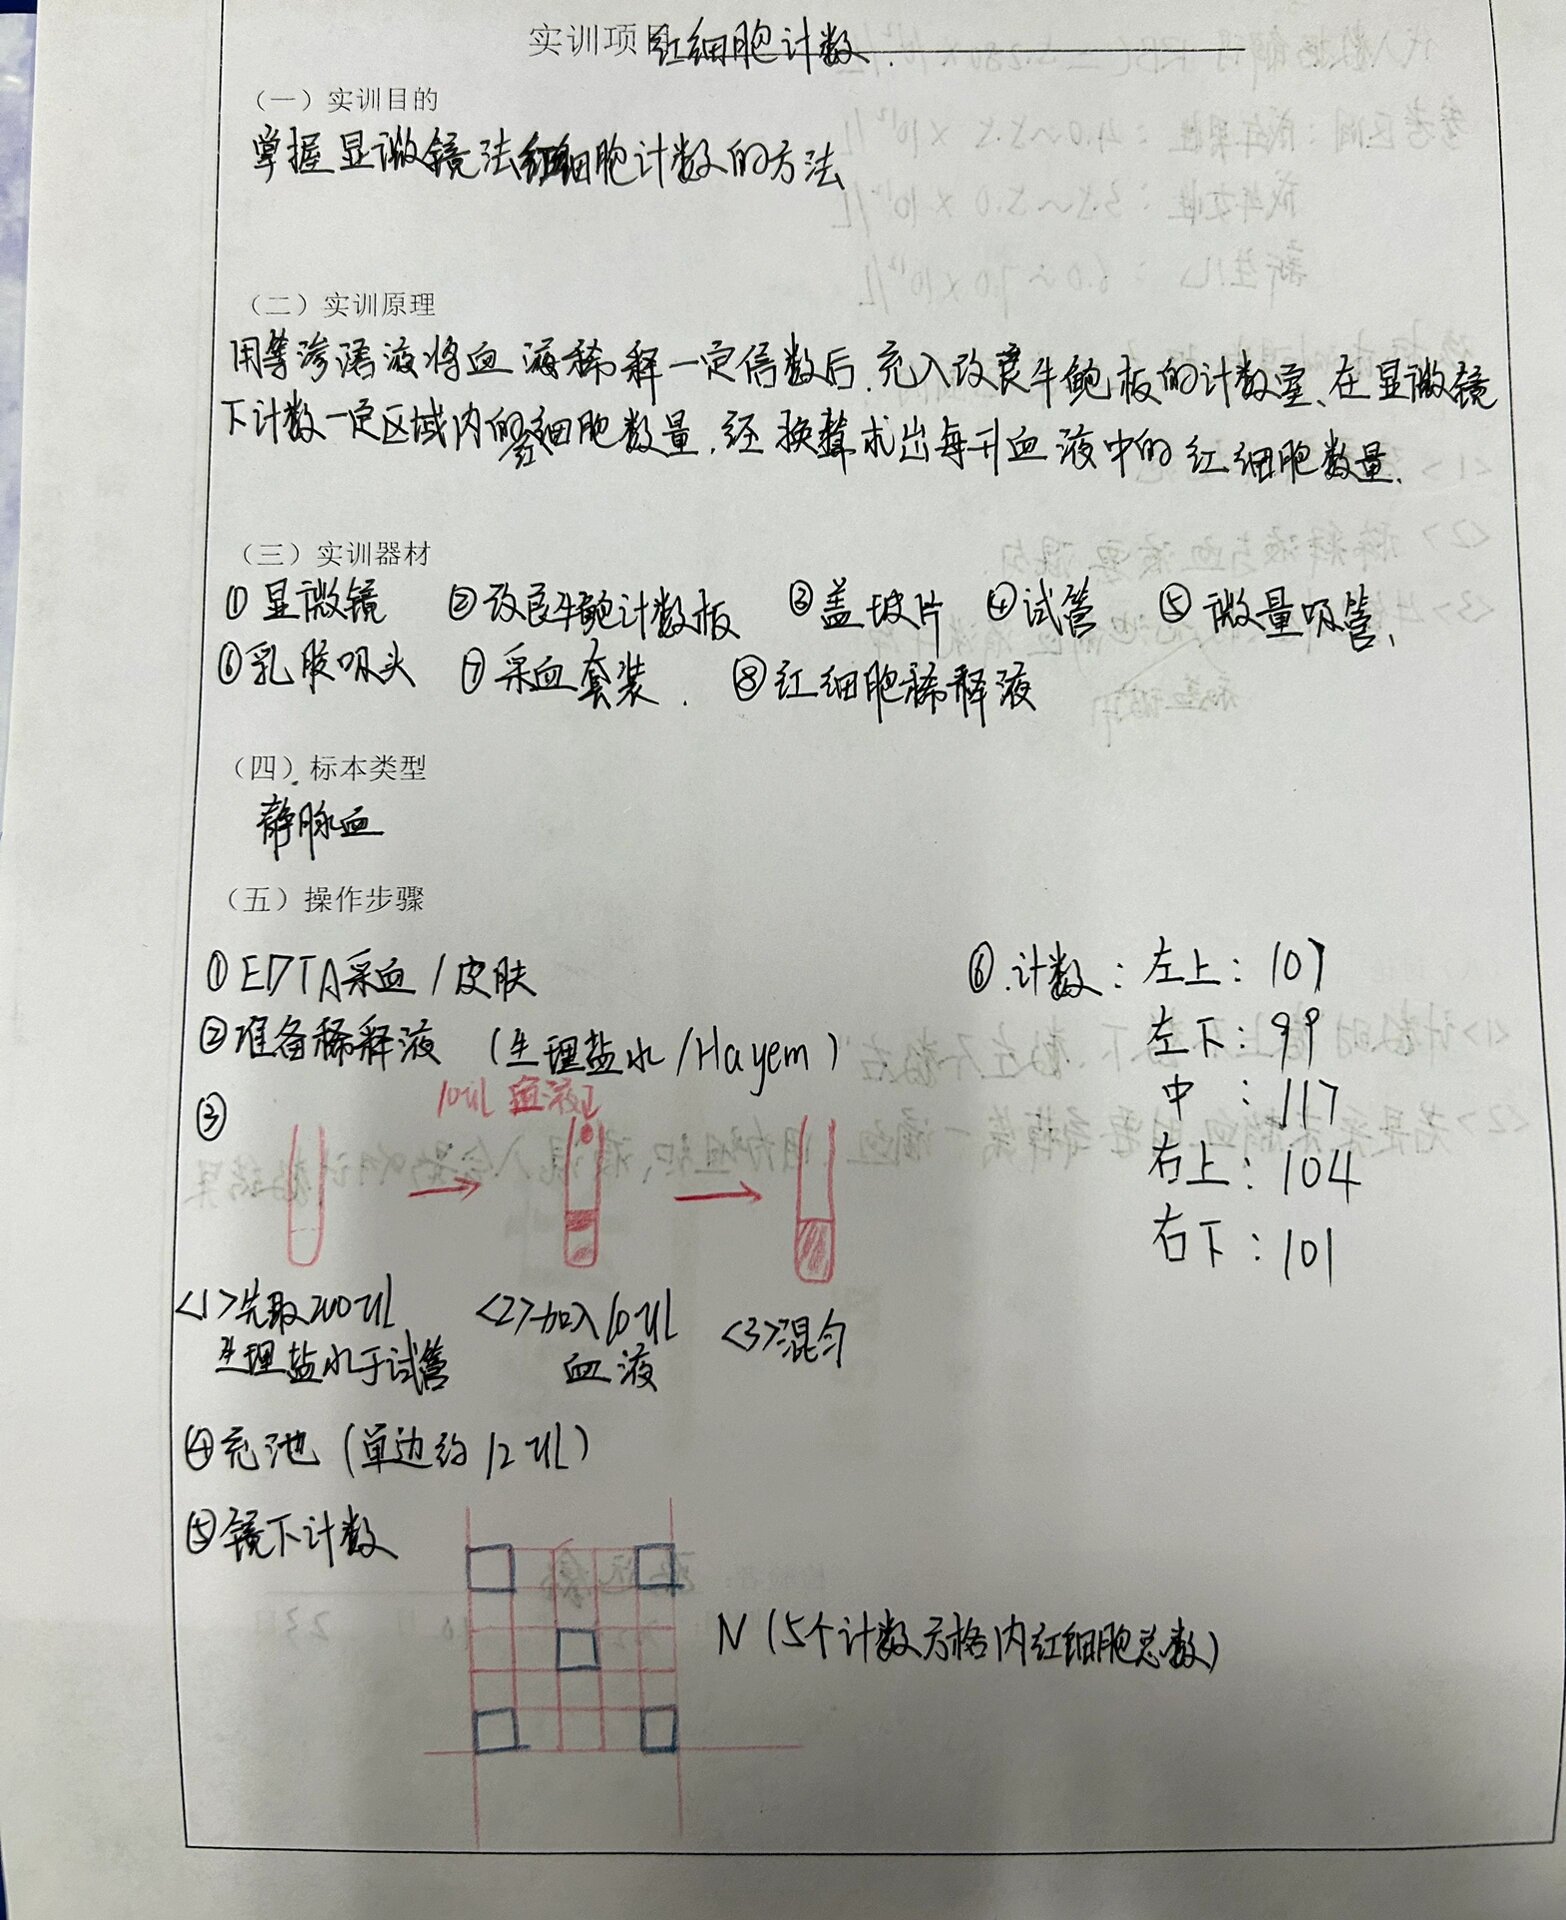 实训项目 红细胞计数.
（一）实训目的
掌握显微镜法红细胞计数的方法
（二）实训原理
用等渗溶液将血液稀释一定倍数后,充入改良牛鲍板的计数室、在显微镜
下计数一定区域内的红细胞数量,经换算求出每升血液中的红细胞数量.
（三）实训器材
①显微镜 ②改良牛鲍计数板 ③盖玻片 ④试管 ⑤微量吸管、
⑥乳胶吸头 ⑦采血套装. ⑧红细胞稀释液
（四）标本类型
静脉血
（五）操作步骤
①EDTA采血/皮肤
②准备稀释液 (生理盐水/Hayem)
③
10ul 血液
<1>先取200ul
生理盐水于试管
<2>加入10ul
血液
<3>混匀
④充池(单边约12ul)
⑤镜下计数
N(5个计数方格内红细胞总数)
⑥.计数:左上:107
左下:99
中:117
右上:104
右下:101